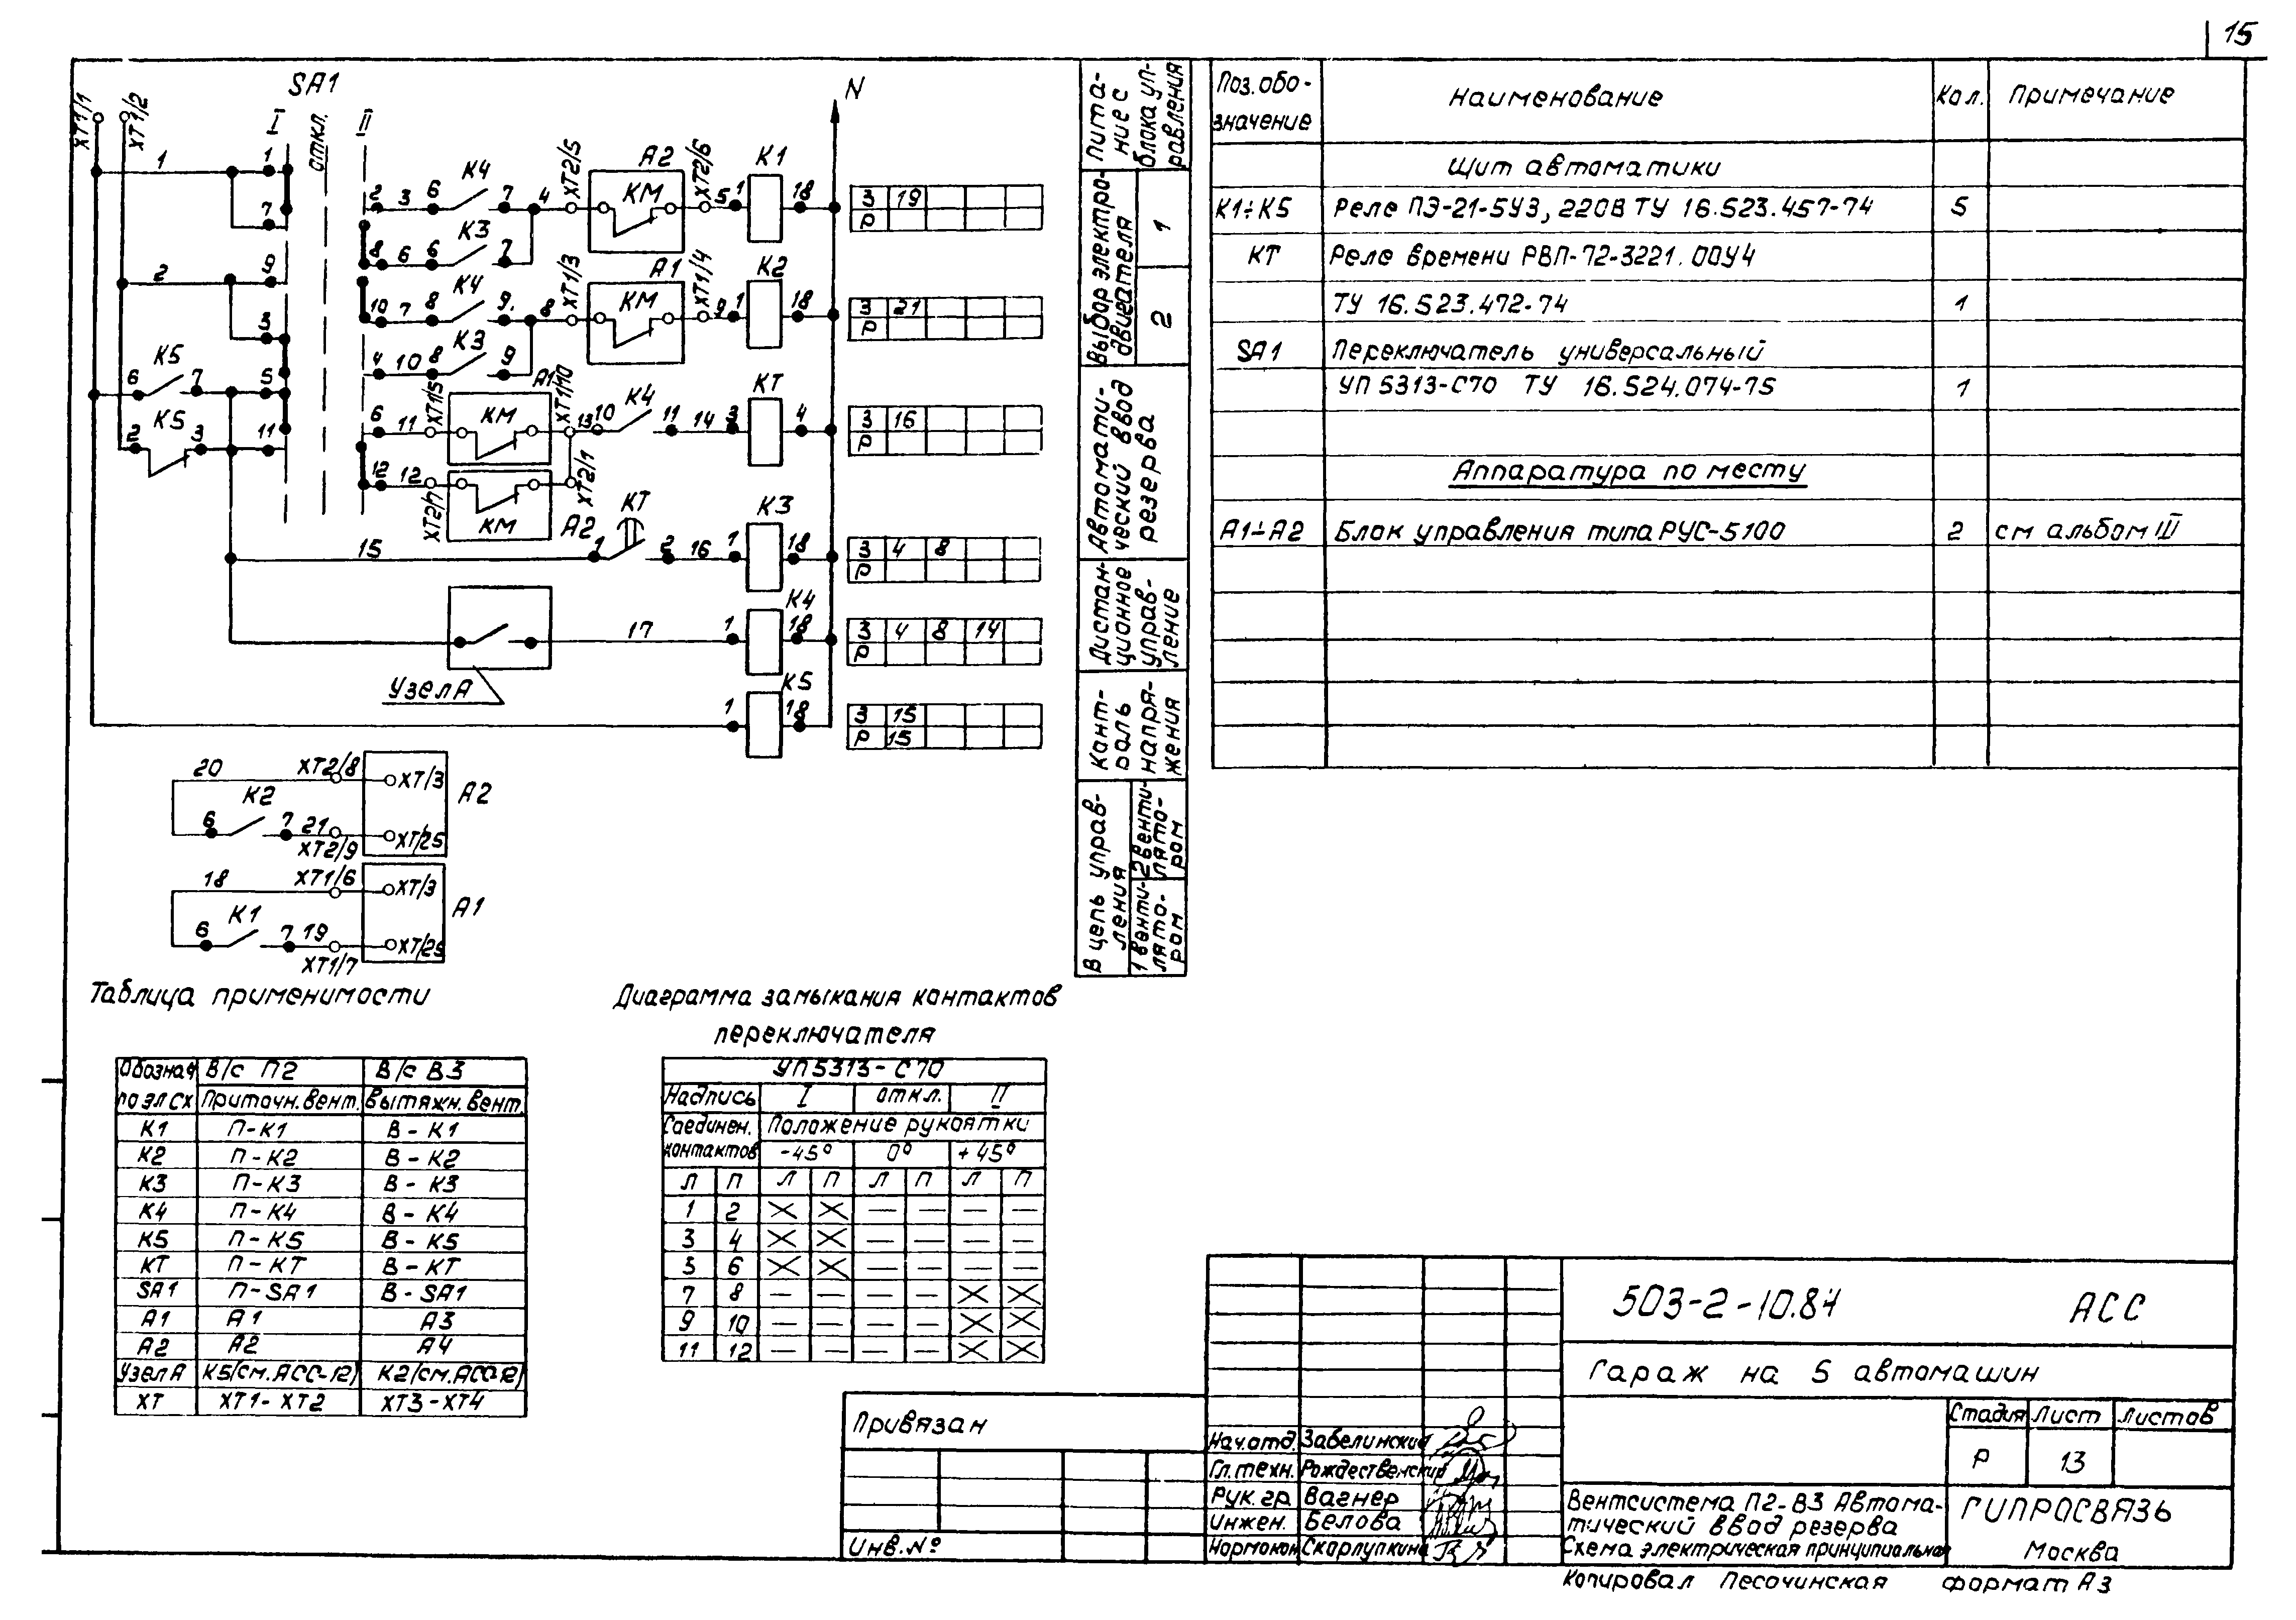 15
SA1
XT1/1
XT1/2
I
откл.
II
N
1
1
7
2
9
3
6
K5
7
5
K5
2
3
11
2
3
6
K4
7
4
XT2/5
A2
KM
XT2/6
5
1
K1
18
8
6
6
K3
7
10
7
8
K4
9
8
XT1/3
A1
KM
XT1/4
9
1
K2
18
4
10
8
K3
9
6
11
XT1/5
KM
A1
XT1/10
13
10
K4
11
14
3
KT
4
12
12
XT2/7
KM
A2
XT2/1
15
1
KT
2
16
1
K3
18
17
1
K4
18
Узел А
1
K5
18
З 19
Р
З 21
Р
З 16
Р
З 4 8
Р
З 4 8 14
Р
З 15
Р 15
Пита-
ние с
блока уп-
равления
Выбор электро-
двигателя
1
2
Автомати-
ческий ввод
резерва
Дистан-
ционное
управ-
ление
Конт-
роль
напря-
жения
В цепь управ-
ления
1 венти-
лято-
ром
2 венти-
лято-
ром
20
XT2/8
XT/3
A2
6
K2
7
21
XT2/9
XT/25
18
XT1/6
XT/3
A1
6
K1
7
19
XT1/7
XT/25
Поз. обо-
значение
Наименование
Кол.
Примечание
Щит автоматики
K1÷K5 Реле ПЭ-21-5У3, 220В ТУ 16.523.457-74 5
KT Реле времени РВП-72-3221.00У4
ТУ 16.523.472-74 1
SA1 Переключатель универсальный
УП 5313-С70 ТУ 16.524.074-75 1
Аппаратура по месту
A1÷A2 Блок управления типа РУС-5100 2 см альбом III
Таблица применимости
Обознач В/с П2 В/с В3
по эл сх Приточн. вент. Вытяжн. вент.
K1 П-K1 В-K1
K2 П-K2 В-K2
K3 П-K3 В-K3
K4 П-K4 В-K4
K5 П-K5 В-K5
KT П-KT В-KT
SA1 П-SA1 В-SA1
A1 A1 A3
A2 A2 A4
Узел А K5 (см. АСС-12) K2 (см. АСС-12)
XT XT1-XT2 XT3-XT4
Диаграмма замыкания контактов
переключателя
УП5313-С70
Надпись I откл. II
Соединен. Положение рукоятки
контактов -45° 0° +45°
Л П Л П Л П Л П
1 2 X X — — — —
3 4 X X — — — —
5 6 X X — — — —
7 8 — — — — X X
9 10 — — — — X X
11 12 — — — — X X
Привязан
Инв. №
503-2-10.84 АСС
Гараж на 5 автомашин
Стадия Лист Листов
Р 13
Нач. отд. Забелинский
Гл. техн. Рождественский
Рук. гр. Вагнер
Инжен. Белова
Нормокон Скорлупкина
Вентсистема П2-В3 Автома-
тический ввод резерва
Схема электрическая принципиальная
ГИПРОСВЯЗЬ
Москва
Копировал Песочинская формат А3